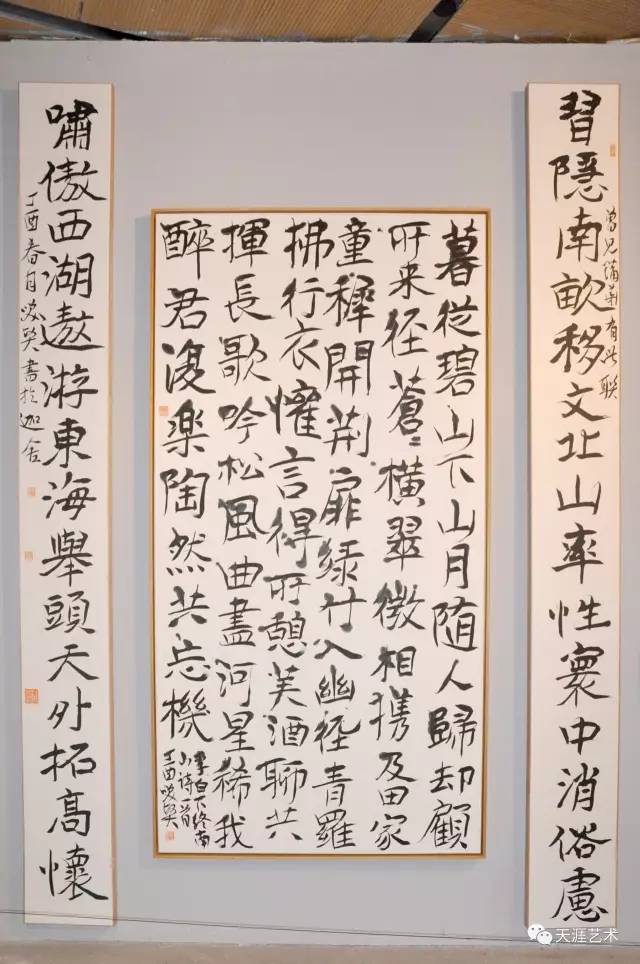 習隱南畝移文北山率性寰中消俗慮
曾见蒲華有此联
暮從碧山下山月随人歸却顧
所来径蒼〻橫翠微相携及田家
童稺開荆扉緑竹入幽径青羅
拂行衣懽言得所憩美酒聊共
揮長歌吟松風曲盡河星稀我
醉君復楽陶然共忘機
李白下终南
小诗一首
丁酉
嘯傲西湖遨游東海舉頭天外拓高懷
丁酉春月 書於迦舍
天涯艺术